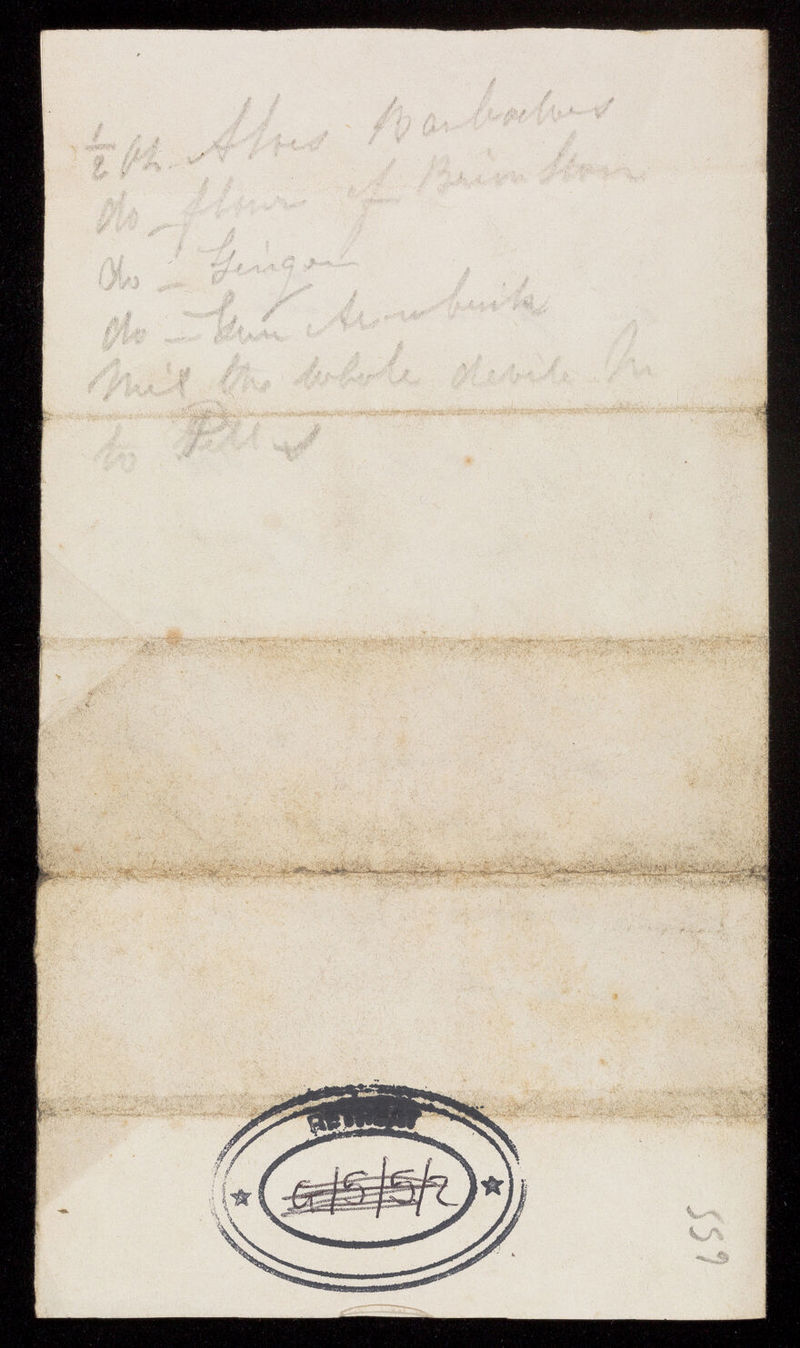 ½ oz Aloes Barbadoes
do flour of Brimston
do - Ginger
do - Gum
Mix the whole devide In
to Pills
RETREAT
G/5/5/2
559